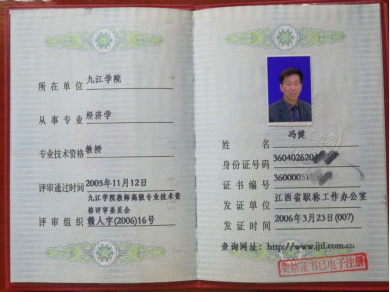 所在单位 九江学院
从事专业 经济学
专业技术资格 教授
评审通过时间 2005年11月12日
九江学院教师高级专业技术资
格评审委员会
评审组织 赣人字(2006)16号
姓名 冯健
身份证号码
证书编号
发证单位 江西省职称工作办公室
发证时间 2006年3月23日(007)
查询网址: http://www.jjtl.com.cn